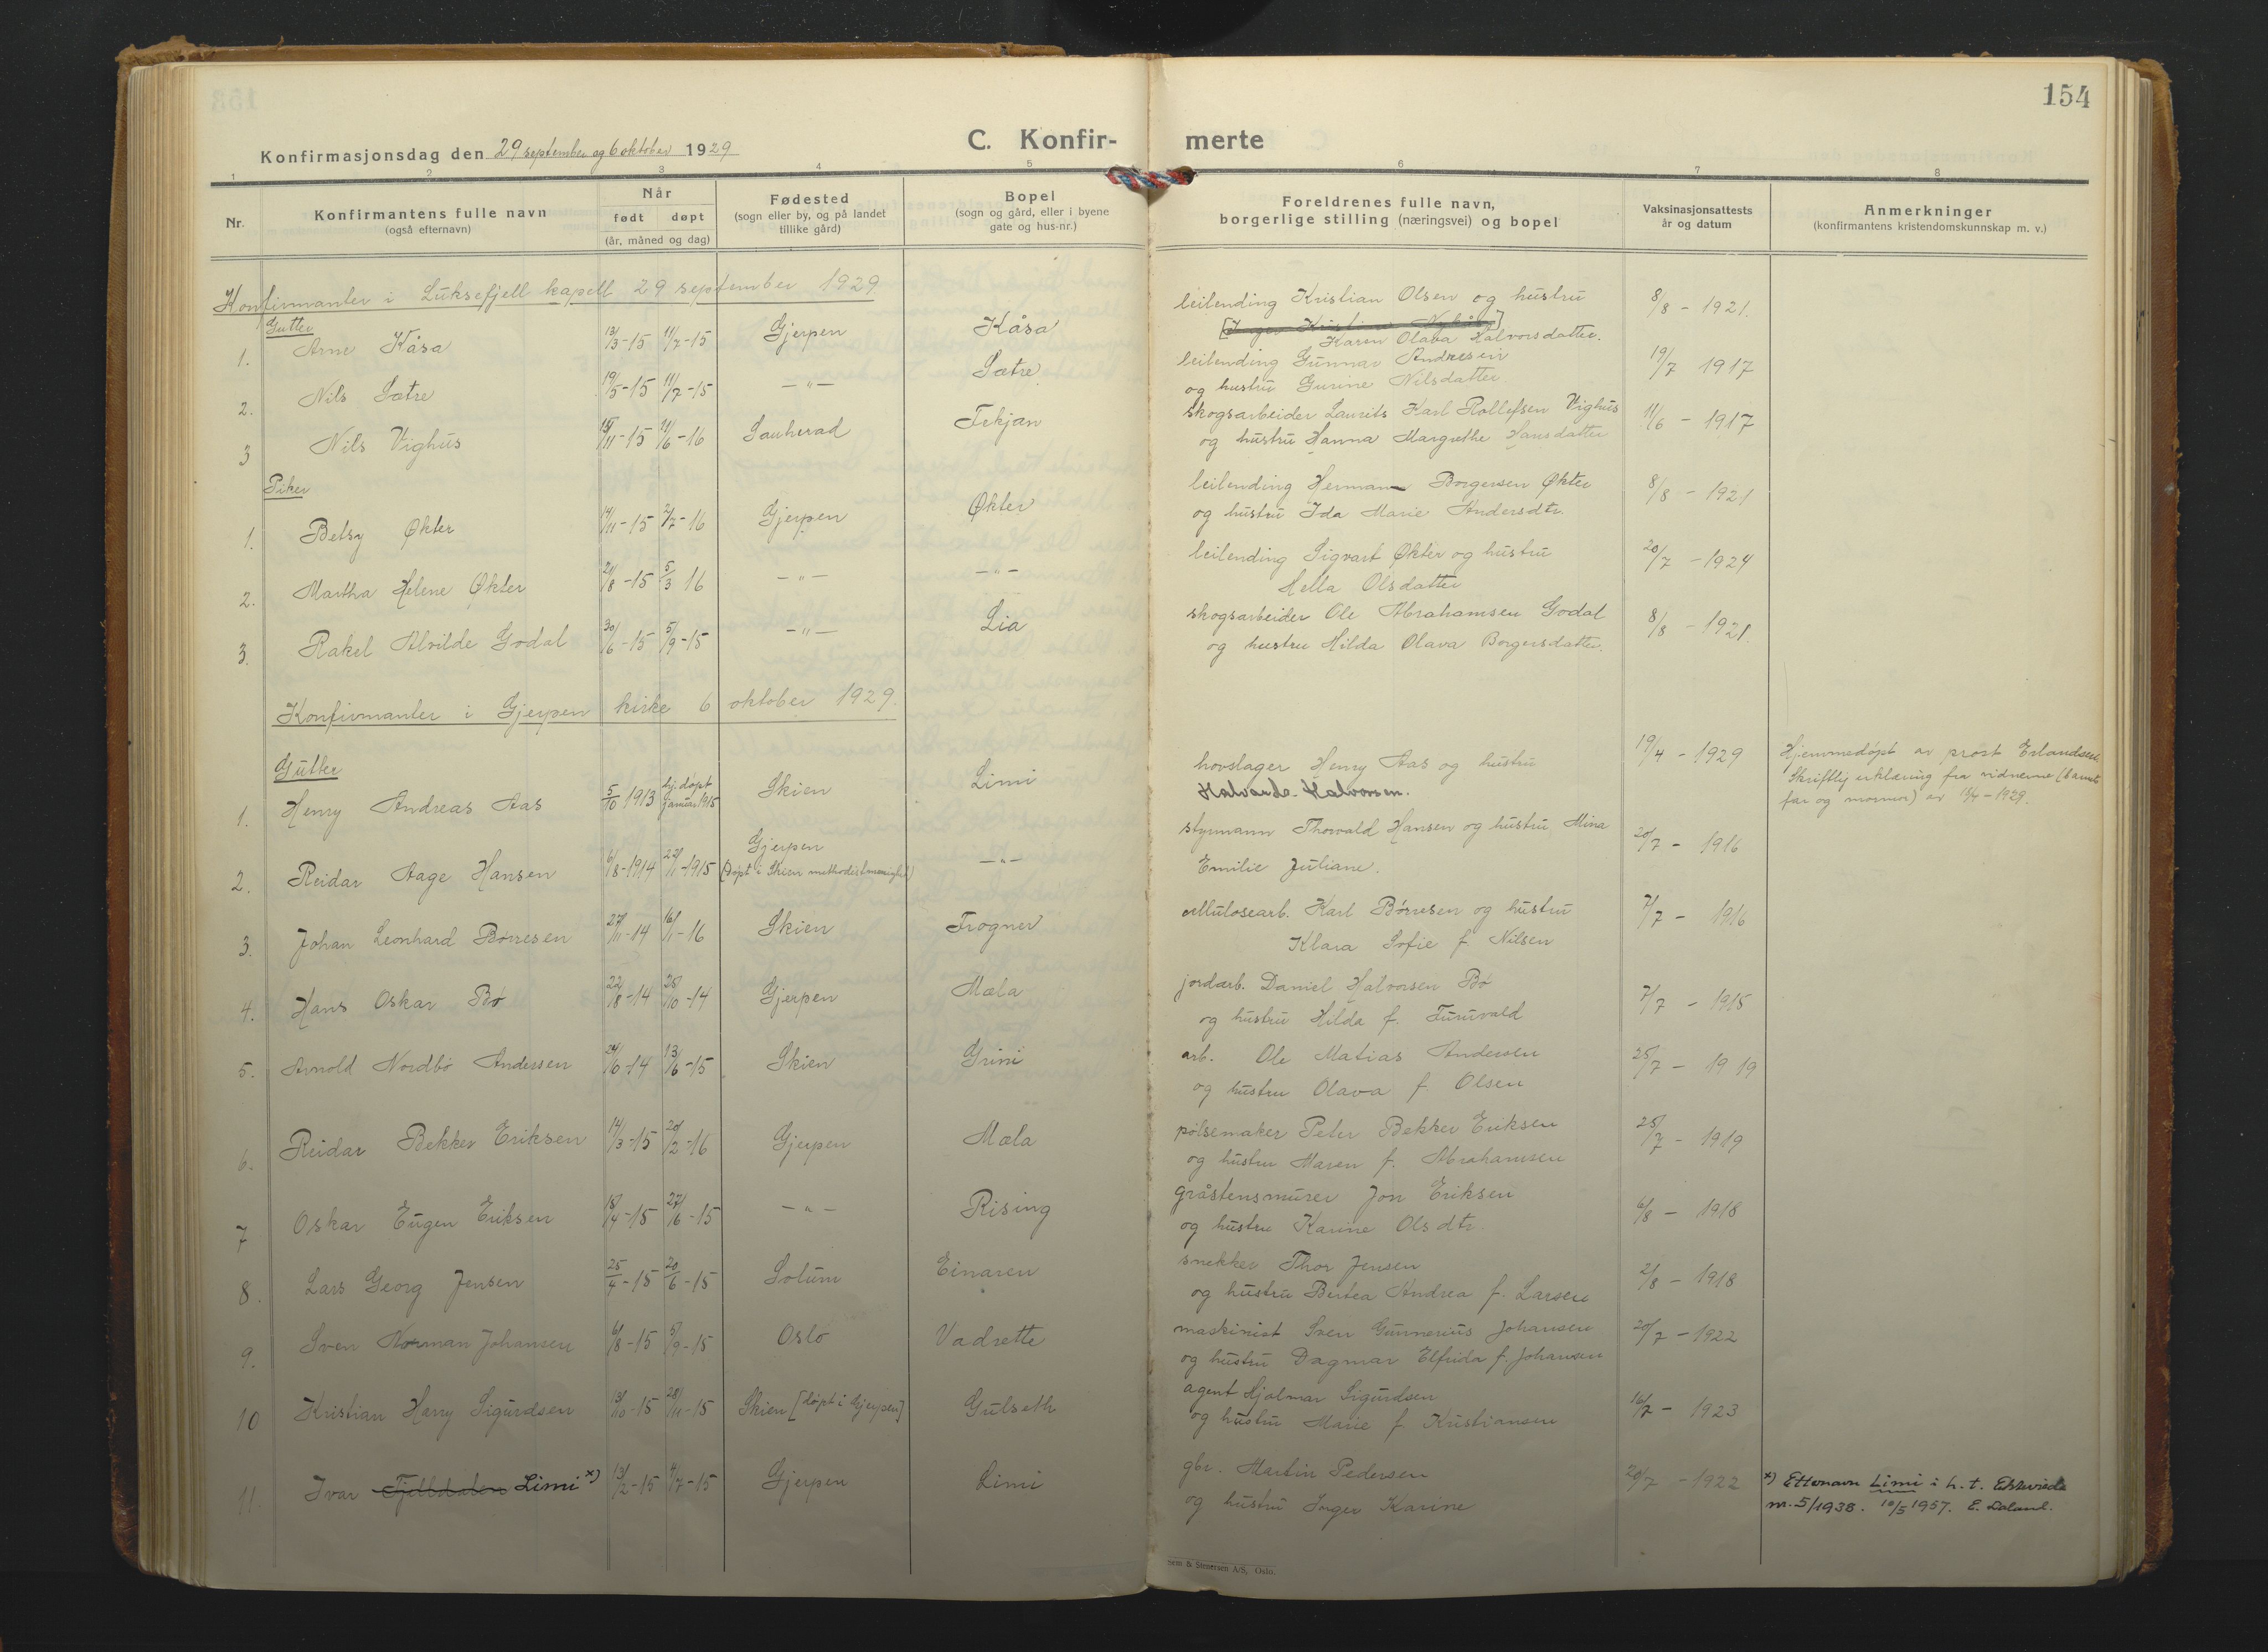 154
Konfirmasjonsdag den 29 september og 6 oktober 1929
C. Konfir- merte
1 2 3 4 5 6 7 8
Nr.
Konfirmantens fulle navn
(også efternavn)
Når
født døpt
(år, måned og dag)
Fødested
(sogn eller by, og på landet
tillike gård)
Bopel
(sogn og gård, eller i byene
gate og hus-nr.)
Foreldrenes fulle navn,
borgerlige stilling (næringsvei) og bopel
Vaksinasjonsattests
år og datum
Anmerkninger
(konfirmantens kristendomskunnskap m. v.)
Konfirmanter i Luksefjell kapell 29 september 1929
Gutter
1. Arne Kåsa 13/3-15 11/7-15 Gjerpen Kåsa leilending Kristian Olsen og hustru 8/8 - 1921.
Karen Olava Halvorsdatter.
2. Nils Sætre 19/5-15 11/7-15 -"- Sætre leilending Gunnar Andresen 19/7 1917
og hustru Gurine Nilsdatter
3 Nils Vighus 15/11-15 11/6-16 Sauherad Tekjan skogsarbeider Laurits Karl Rollefsen Vighus 11/6 - 1917
og hustru Hanna Margrethe Hansdatter
Piker
1. Betsy Økter 14/11-15 2/7-16 Gjerpen Økter leilending Herman Borgersen Økter 8/8 - 1921
og hustru Ida Marie Andersdtr.
2. Martha Helene Økter 21/8-15 5/3 16 -"- -"- leilending Sigvart Økter og hustru 20/7 - 1924
Hella Olsdatter
3. Rakel Alvilde Godal 30/6-15 5/9-15 -"- Lia skogsarbeider Ole Abrahamsen Godal 8/8 - 1921.
og hustru Hilda Olava Borgersdatter.
Konfirmanter i Gjerpen kirke 6 oktober 1929.
Gutter
1. Henry Andreas Aas 5/10 1913 hj. døpt januar 1915 Skien Limi hovslager Henry Aas og hustru 19/4 - 1929 Hjemmedøpt av prost Erlandsen.
Halvorsen. Skriftlig erklæring fra vidnerne (barnets
far og mormor) av 18/4 - 1929.
2. Reidar Aage Hansen 6/8-1914 22/11-1915 Gjerpen -"- styrmann Thorvald Hansen og hustru Mina 20/7 - 1916
(Døpt i Skien methodistmenighet) Emilie Juliane.
3. Johan Leonhard Børresen 27/11-14 16/1-16 Skien Frogner cellulosearb. Karl Børresen og hustru 7/7 - 1916
Klara Sofie f Nilsen
4. Hans Oskar Bø 22/8-14 25/10-14 Gjerpen Mæla jordarb. Daniel Halvorsen Bø 7/7 - 1915
og hustru Hilda f. Furuvald
5. Arnold Nordbø Andersen 24/10-14 13/6-15 Skien Grini arb. Ole Matias Andersen 25/7 - 1919
og hustru Olava f. Olsen
6. Reidar Bekker Eriksen 14/3-15 20/2-16 Gjerpen Mæla pølsemaker Peter Bekker Eriksen 25/7 - 1919
og hustru Maren f. Abrahamsen
7 Oskar Eugen Eriksen 18/4-15 27/6-15 -"- Rising gråstensmurer Jon Eriksen 6/8 - 1918
og hustru Karine Olsdtr.
8. Lars Georg Jensen 25/4-15 20/6-15 Solum Einaren snekker Thor Jensen 2/8 - 1918
og hustru Bertea Andrea f. Larsen
9. Sven Norman Johansen 6/8-15 5/9-15 Oslo Vadrette maskinist Sven Gunnerius Johansen 20/7 - 1922
og hustru Dagmar Elfrida f. Johansen
10 Kristian Harry Sigurdsen 13/10-15 28/11-15 Skien [døpt i Gjerpen] Gulseth agent Hjalmar Sigurdsen 16/7 - 1923
og hustru Marie f Kristiansen
11. Ivar Fjelldalen Limi x) 13/2-15 4/7-15 Gjerpen Limi gbr. Martin Pedersen 20/7 - 1922 x) Ettenavn Limi i h. t.
og hustru Inger Karine nr. 5/1938. 10/5 1957. E. Laland.
Sem & Stenersen A/S, Oslo.